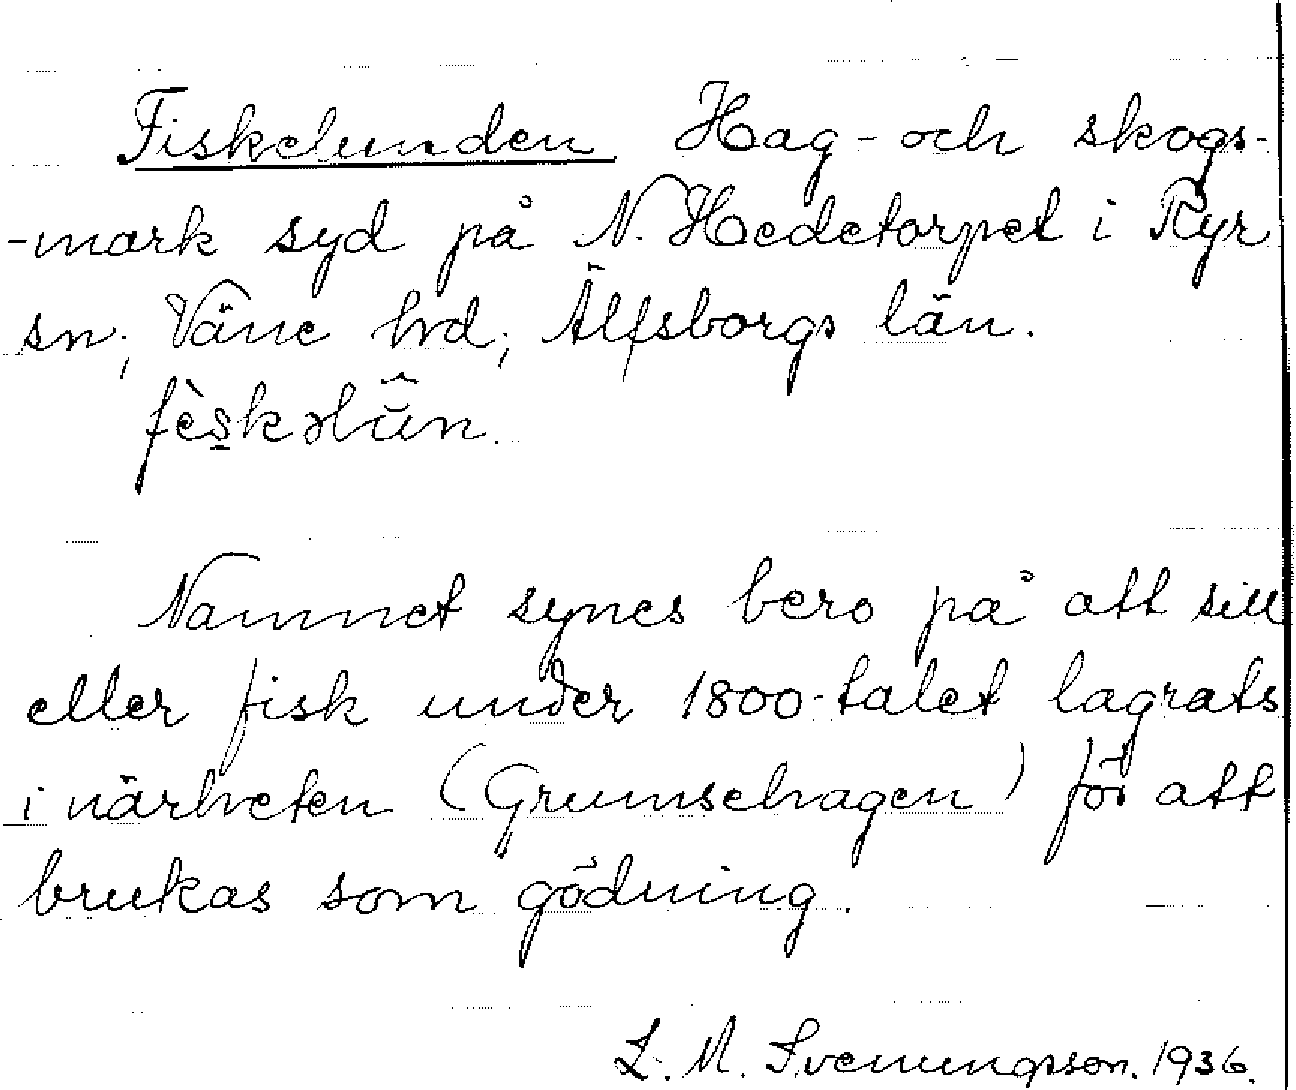 Fiskelunden Hag- och skogs-
-mark syd på N. Hedetorpet i Ryr
sn; Väne hd; Älfsborgs län.
fès̱kəlū̂n.
Namnet synes bero på att sill
eller fisk under 1800-talet lagrats
i närheten (Grumsehagen) för att
brukas som gödning.
L. M. Svenungsson. 1936.